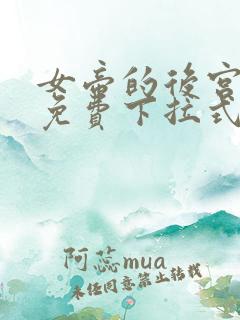 女帝的後宮
免費下拉式
阿蕊mua
未经同意禁止转载